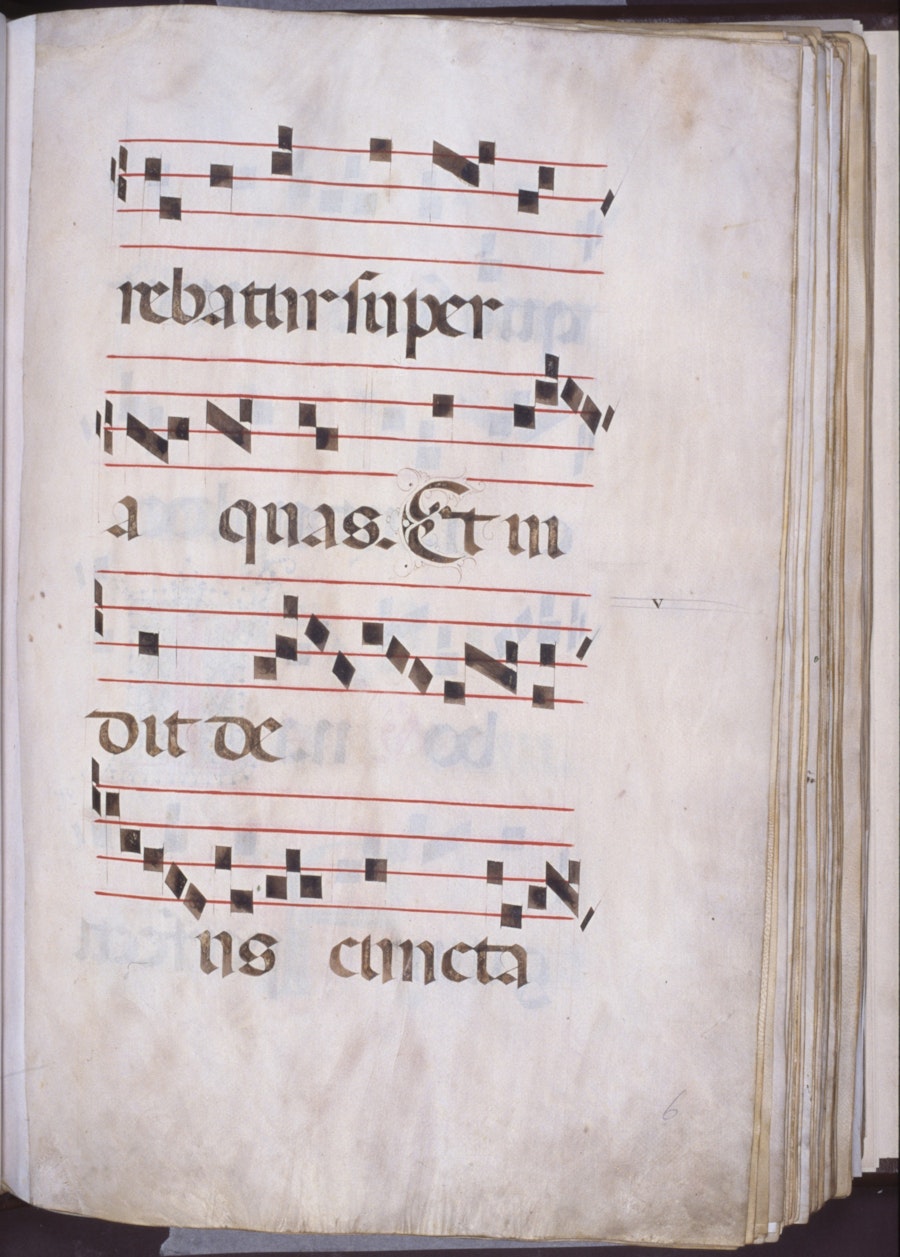 rebatur super
a quas. Et vi
dit de
v
us cuncta
6